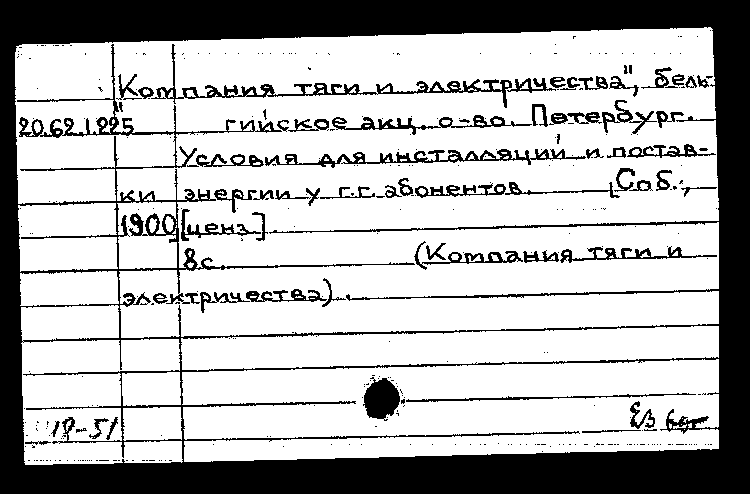 "Компания тяги и электричества", бель-
20.62.1.225 гийское акц. о-во. Петербург.
Условия для инсталляций и постав-
ки энергии у г.г. абонентов. [Спб.,
1900][ценз]
8с. (Компания тяги и
электричества).
18-51